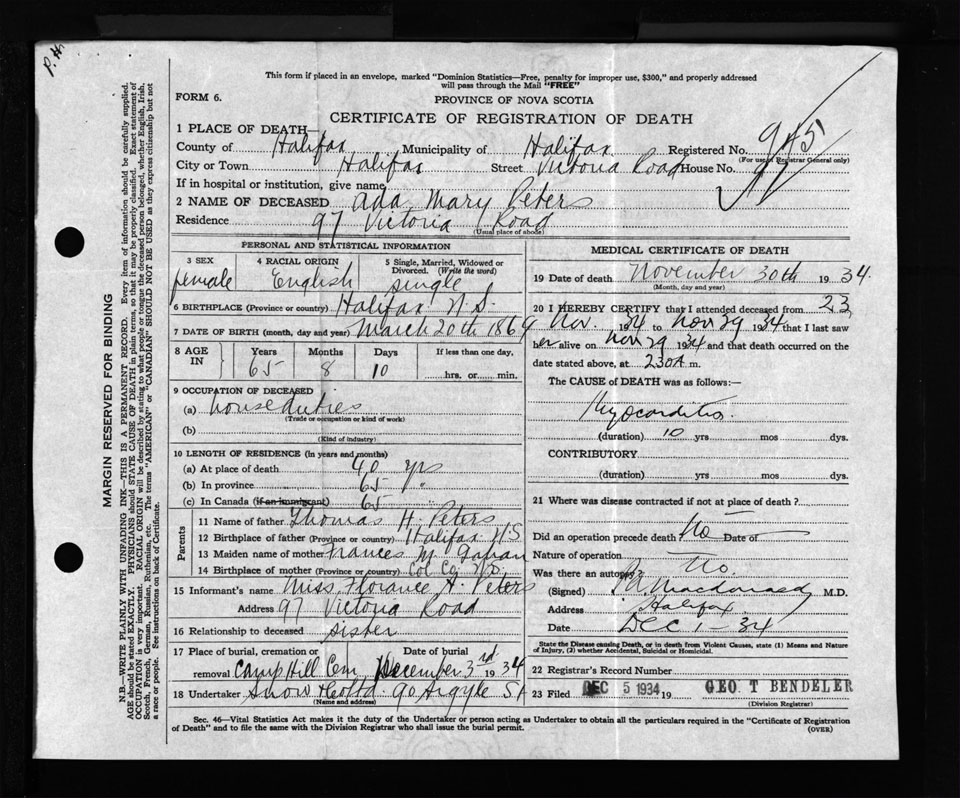 P. H.
This form if placed in an envelope, marked "Dominion Statistics—Free, penalty for improper use, $300," and properly addressed
will pass through the Mail "FREE"
FORM 6.
PROVINCE OF NOVA SCOTIA
CERTIFICATE OF REGISTRATION OF DEATH
1 PLACE OF DEATH—
County of Halifax Municipality of Halifax Registered No. 945
(For use of Registrar General only)
City or Town Halifax Street Victoria Road House No. 97
If in hospital or institution, give name
2 NAME OF DECEASED Ada Mary Peters
Residence 97 Victoria Road
(Usual place of abode)
MARGIN RESERVED FOR BINDING
N.B.—WRITE PLAINLY WITH UNFADING INK—THIS IS A PERMANENT RECORD. Every item of information should be carefully supplied.
AGE should be stated EXACTLY. PHYSICIANS should STATE CAUSE OF DEATH in plain terms, so that it may be properly classified. Exact statement of
OCCUPATION is very important. RACIAL ORIGIN will be described by stating to what people or tongue the deceased person belonged, whether English, Irish,
Scotch, French, German, Russian, Ruthenian, etc. The terms "AMERICAN" or "CANADIAN" SHOULD NOT BE USED as they express citizenship but not
a race or people. See instructions on back of Certificate.
PERSONAL AND STATISTICAL INFORMATION
3 SEX
female
4 RACIAL ORIGIN
English
5 Single, Married, Widowed or
Divorced. (Write the word)
single
6 BIRTHPLACE (Province or country) Halifax N.S.
7 DATE OF BIRTH (month, day and year) March 20th 1869
8 AGE IN
Years Months Days If less than one day,
65 8 10 hrs. or min.
9 OCCUPATION OF DECEASED
(a) house duties
(Trade or occupation or kind of work)
(b)
(Kind of industry)
10 LENGTH OF RESIDENCE (in years and months)
(a) At place of death 40 yrs
(b) In province 65 "
(c) In Canada (if an immigrant) 65 "
Parents
11 Name of father Thomas H. Peters
12 Birthplace of father (Province or country) Halifax N S
13 Maiden name of mother Frances M.
14 Birthplace of mother (Province or country) Col Co. N.S.
15 Informant's name Miss Florance A. Peters
Address 97 Victoria Road
16 Relationship to deceased sister
17 Place of burial, cremation or removal Camp Hill Cem
Date of burial December 3rd 1934
18 Undertaker Snow & Co Ltd. 90 Argyle St
(Name and address)
MEDICAL CERTIFICATE OF DEATH
19 Date of death November 30th 1934.
(Month, day and year)
20 I HEREBY CERTIFY that I attended deceased from 23
Nov. 1934 to Nov 29 1934 that I last saw
her alive on Nov 29 1934 and that death occurred on the
date stated above, at 230 A m.
The CAUSE of DEATH was as follows:—
Myocarditis.
(duration) 10 yrs mos dys.
CONTRIBUTORY
(duration) yrs mos dys.
21 Where was disease contracted if not at place of death?
Did an operation precede death No Date of —
Nature of operation
Was there an autopsy? No.
(Signed) Macdonald M.D.
Address Halifax
Date Dec 1 - 34
State the Disease causing Death, or in death from Violent Causes, state (1) Means and Nature
of Injury, (2) whether Accidental, Suicidal or Homicidal.
22 Registrar's Record Number
23 Filed DEC 5 1934 19 GEO. T BENDELER
(Division Registrar)
Sec. 46—Vital Statistics Act makes it the duty of the Undertaker or person acting as Undertaker to obtain all the particulars required in the "Certificate of Registration
of Death" and to file the same with the Division Registrar who shall issue the burial permit. (OVER)